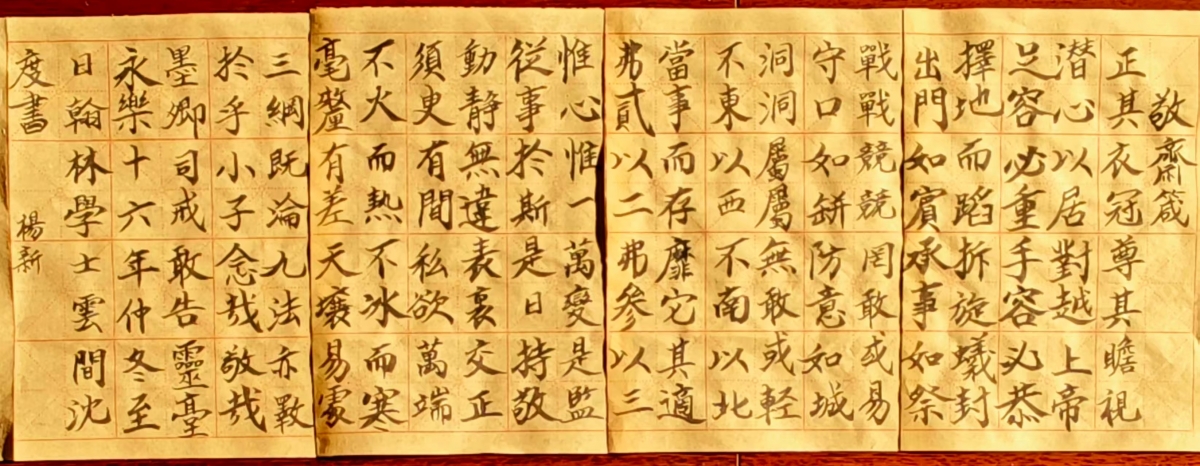 敬齋箴
正其衣冠尊其瞻視
潜心以居對越上帝
足容必重手容必恭
擇地而蹈拆旋蟻封
出門如賓承事如祭
戰戰競競罔敢或易
守口如缾防意如城
洞洞屬屬無敢或輕
不東以西不南以北
當事而存靡它其適
弗貳以二弗參以三
惟心惟一萬變是監
從事於斯是日持敬
動静無違表裏交正
須臾有間私欲萬端
不火而熱不冰而寒
毫釐有差天壤易處
三綱既淪九法亦斁
於乎小子念哉敬哉
墨卿司戒敢告靈臺
永樂十六年仲冬至
日翰林學士雲間沈
度書
楊新